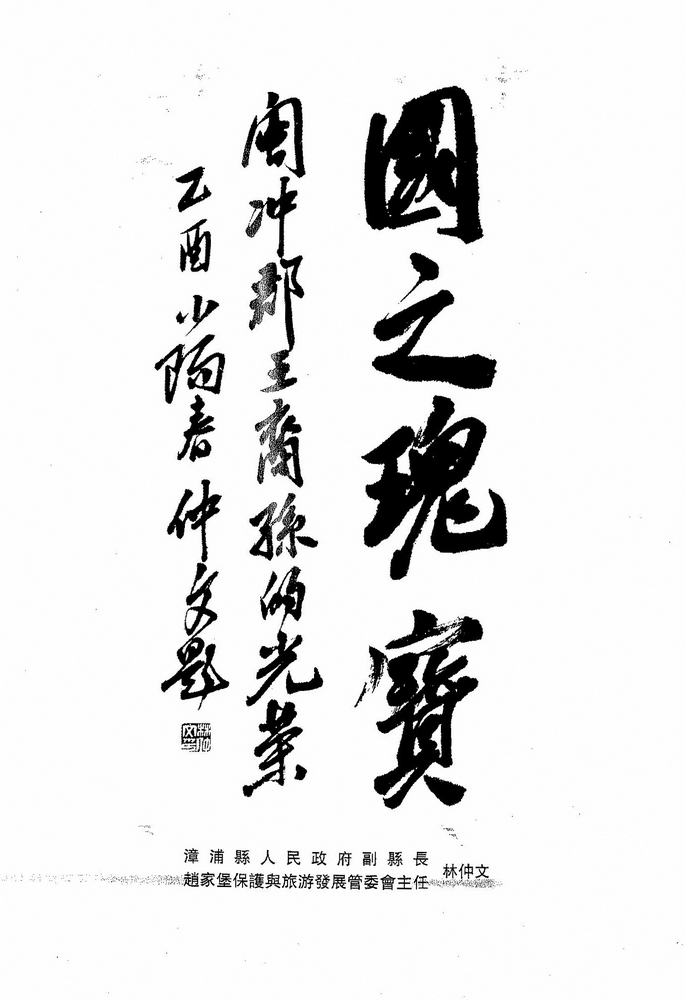 國之瑰寶
閩冲郡王裔孫的光榮
乙酉小陽春仲文題
漳浦縣人民政府副縣長
趙家堡保護與旅游發展管委會主任
林仲文